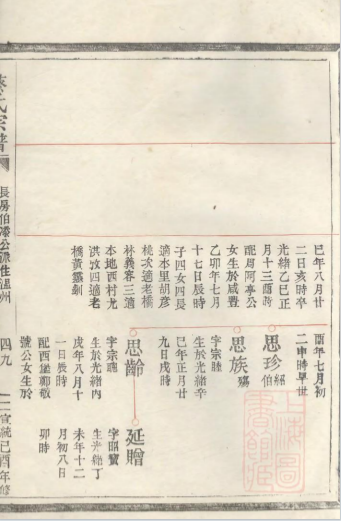 巳年八月廿
二日亥時卒
光緒乙巳正
月十三酉時
配周阿亭公
女生於咸豐
乙卯年七月
十七日辰時
子四女四長
適本里胡彥
桃次適老橋
林義容三適
本地西村尤
洪汝四適老
橋黃
酉年七月初
二申時早世
思珍 紹伯
思族
字宗
生於光緒辛
巳年正月廿
九日戌時
思齡
字宗
生於光緒丙
戌年八月十
一日辰時
配西堡鄭敬
號公女生於
延贈
字昭寶
生光緒丁
未年十二
月初八日
卯時
氏宗譜
長房伯公
溫州
四九
宣統己酉年修
上海圖書館藏